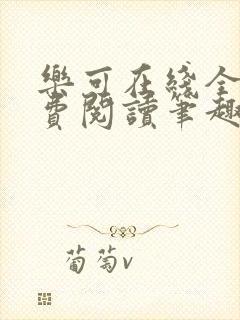 樂可在綫全
費閱讀筆趣
葡萄v